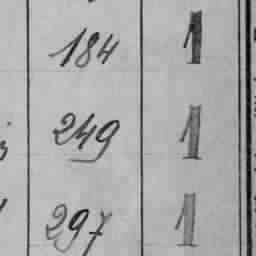 184 1
249 1
297 1